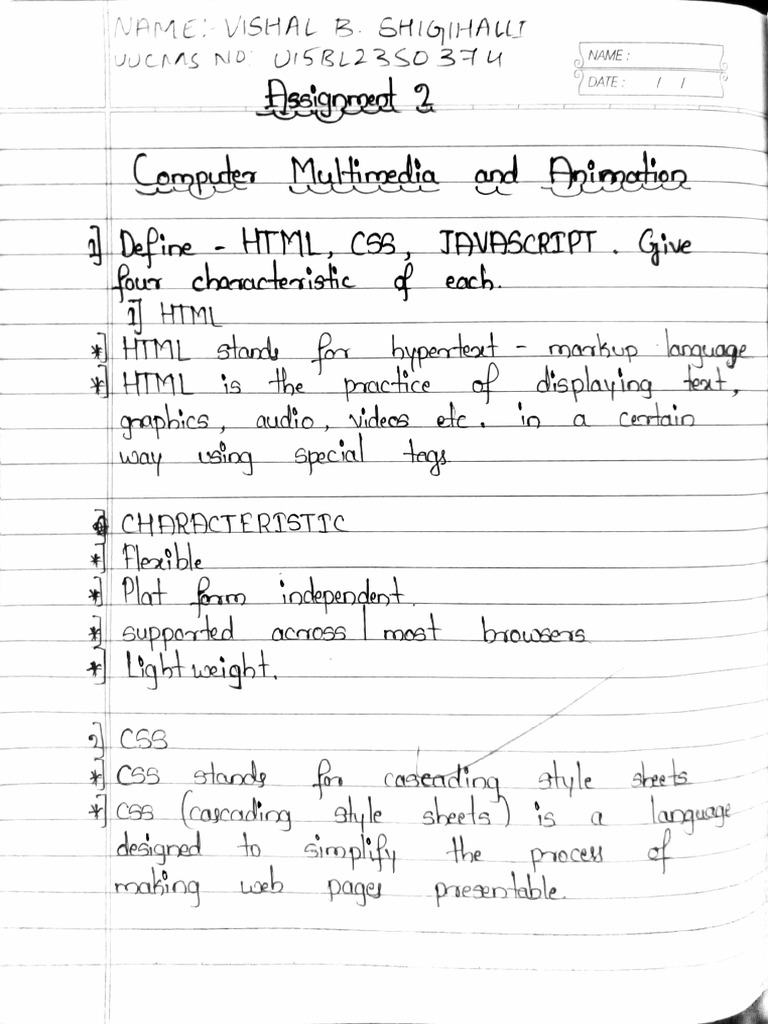 NAME:- VISHAL B. SHIGIHALLI
UUCMS NO: U15BL23S0374
NAME :
DATE : / /
Assignment 2
Computer Multimedia and Animation
1] Define - HTML, CSS, JAVASCRIPT. Give
four characteristic of each.
1] HTML
*] HTML stands for hypertext - markup language
*] HTML is the practice of displaying text,
graphics, audio, videos etc. in a certain
way using special tags
CHARACTERISTIC
*] Flexible
*] Plat form independent.
*] supported across | most browsers
*] Light weight.
2] CSS
*] CSS stands for cascading style sheets
*] CSS (cascading style sheets) is a language
designed to simplify the process of
making web pages presentable.